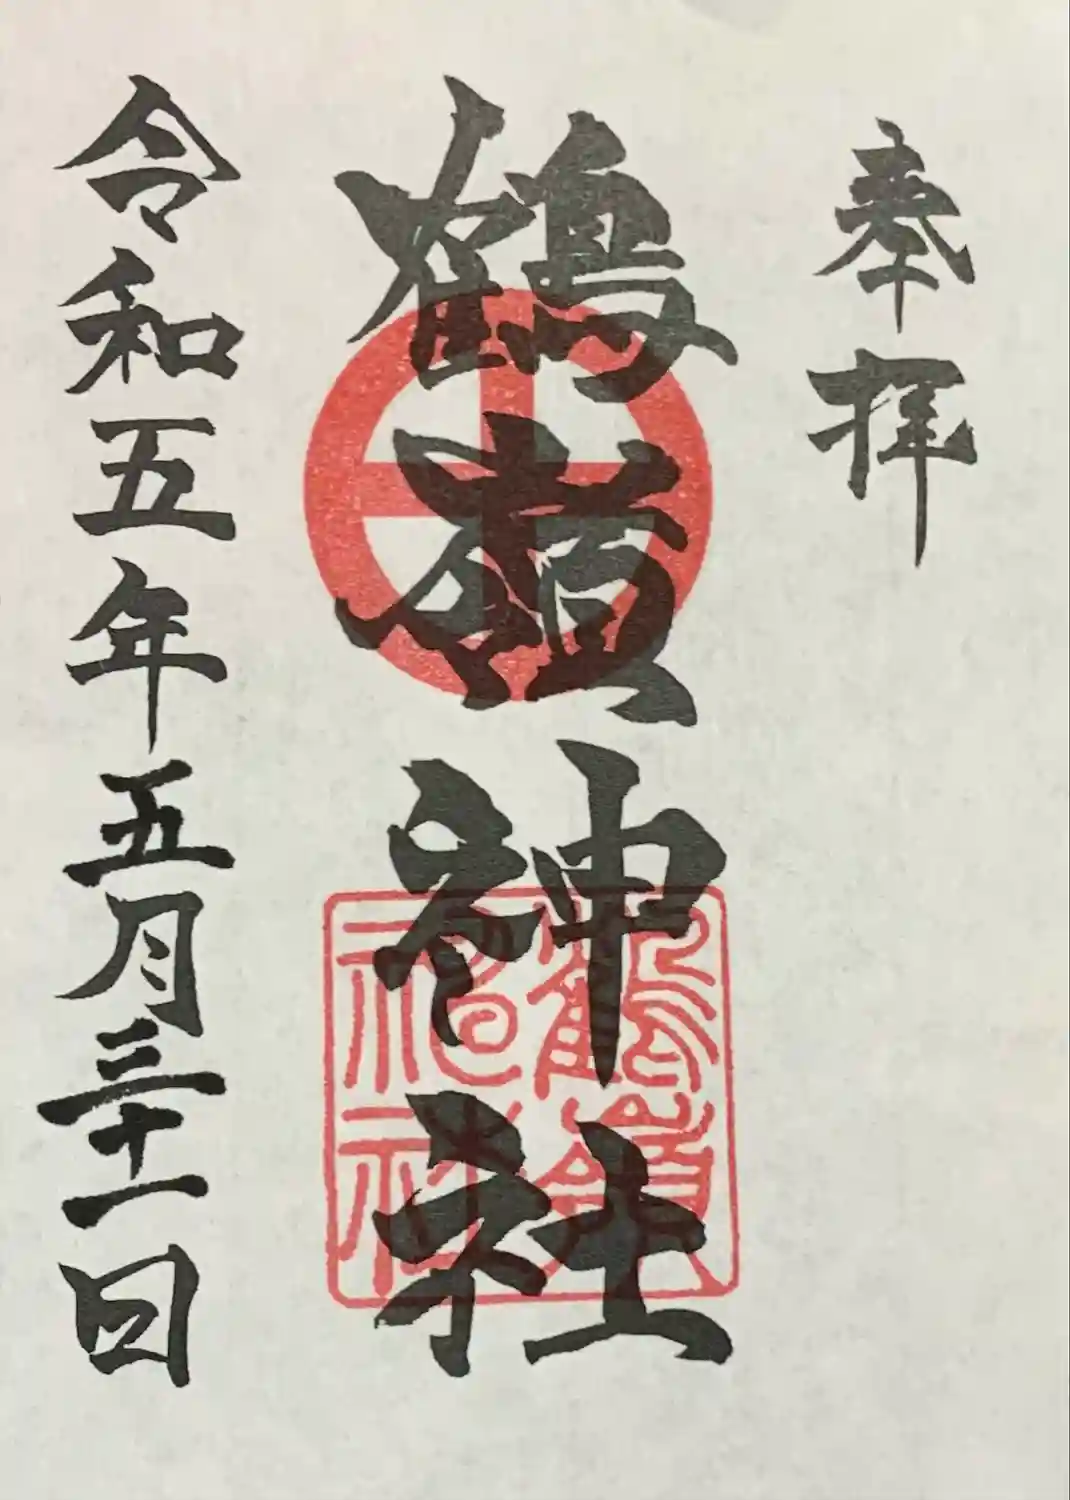 奉拝
鶴嶺神社
令和五年五月三十一日
鶴嶺神社